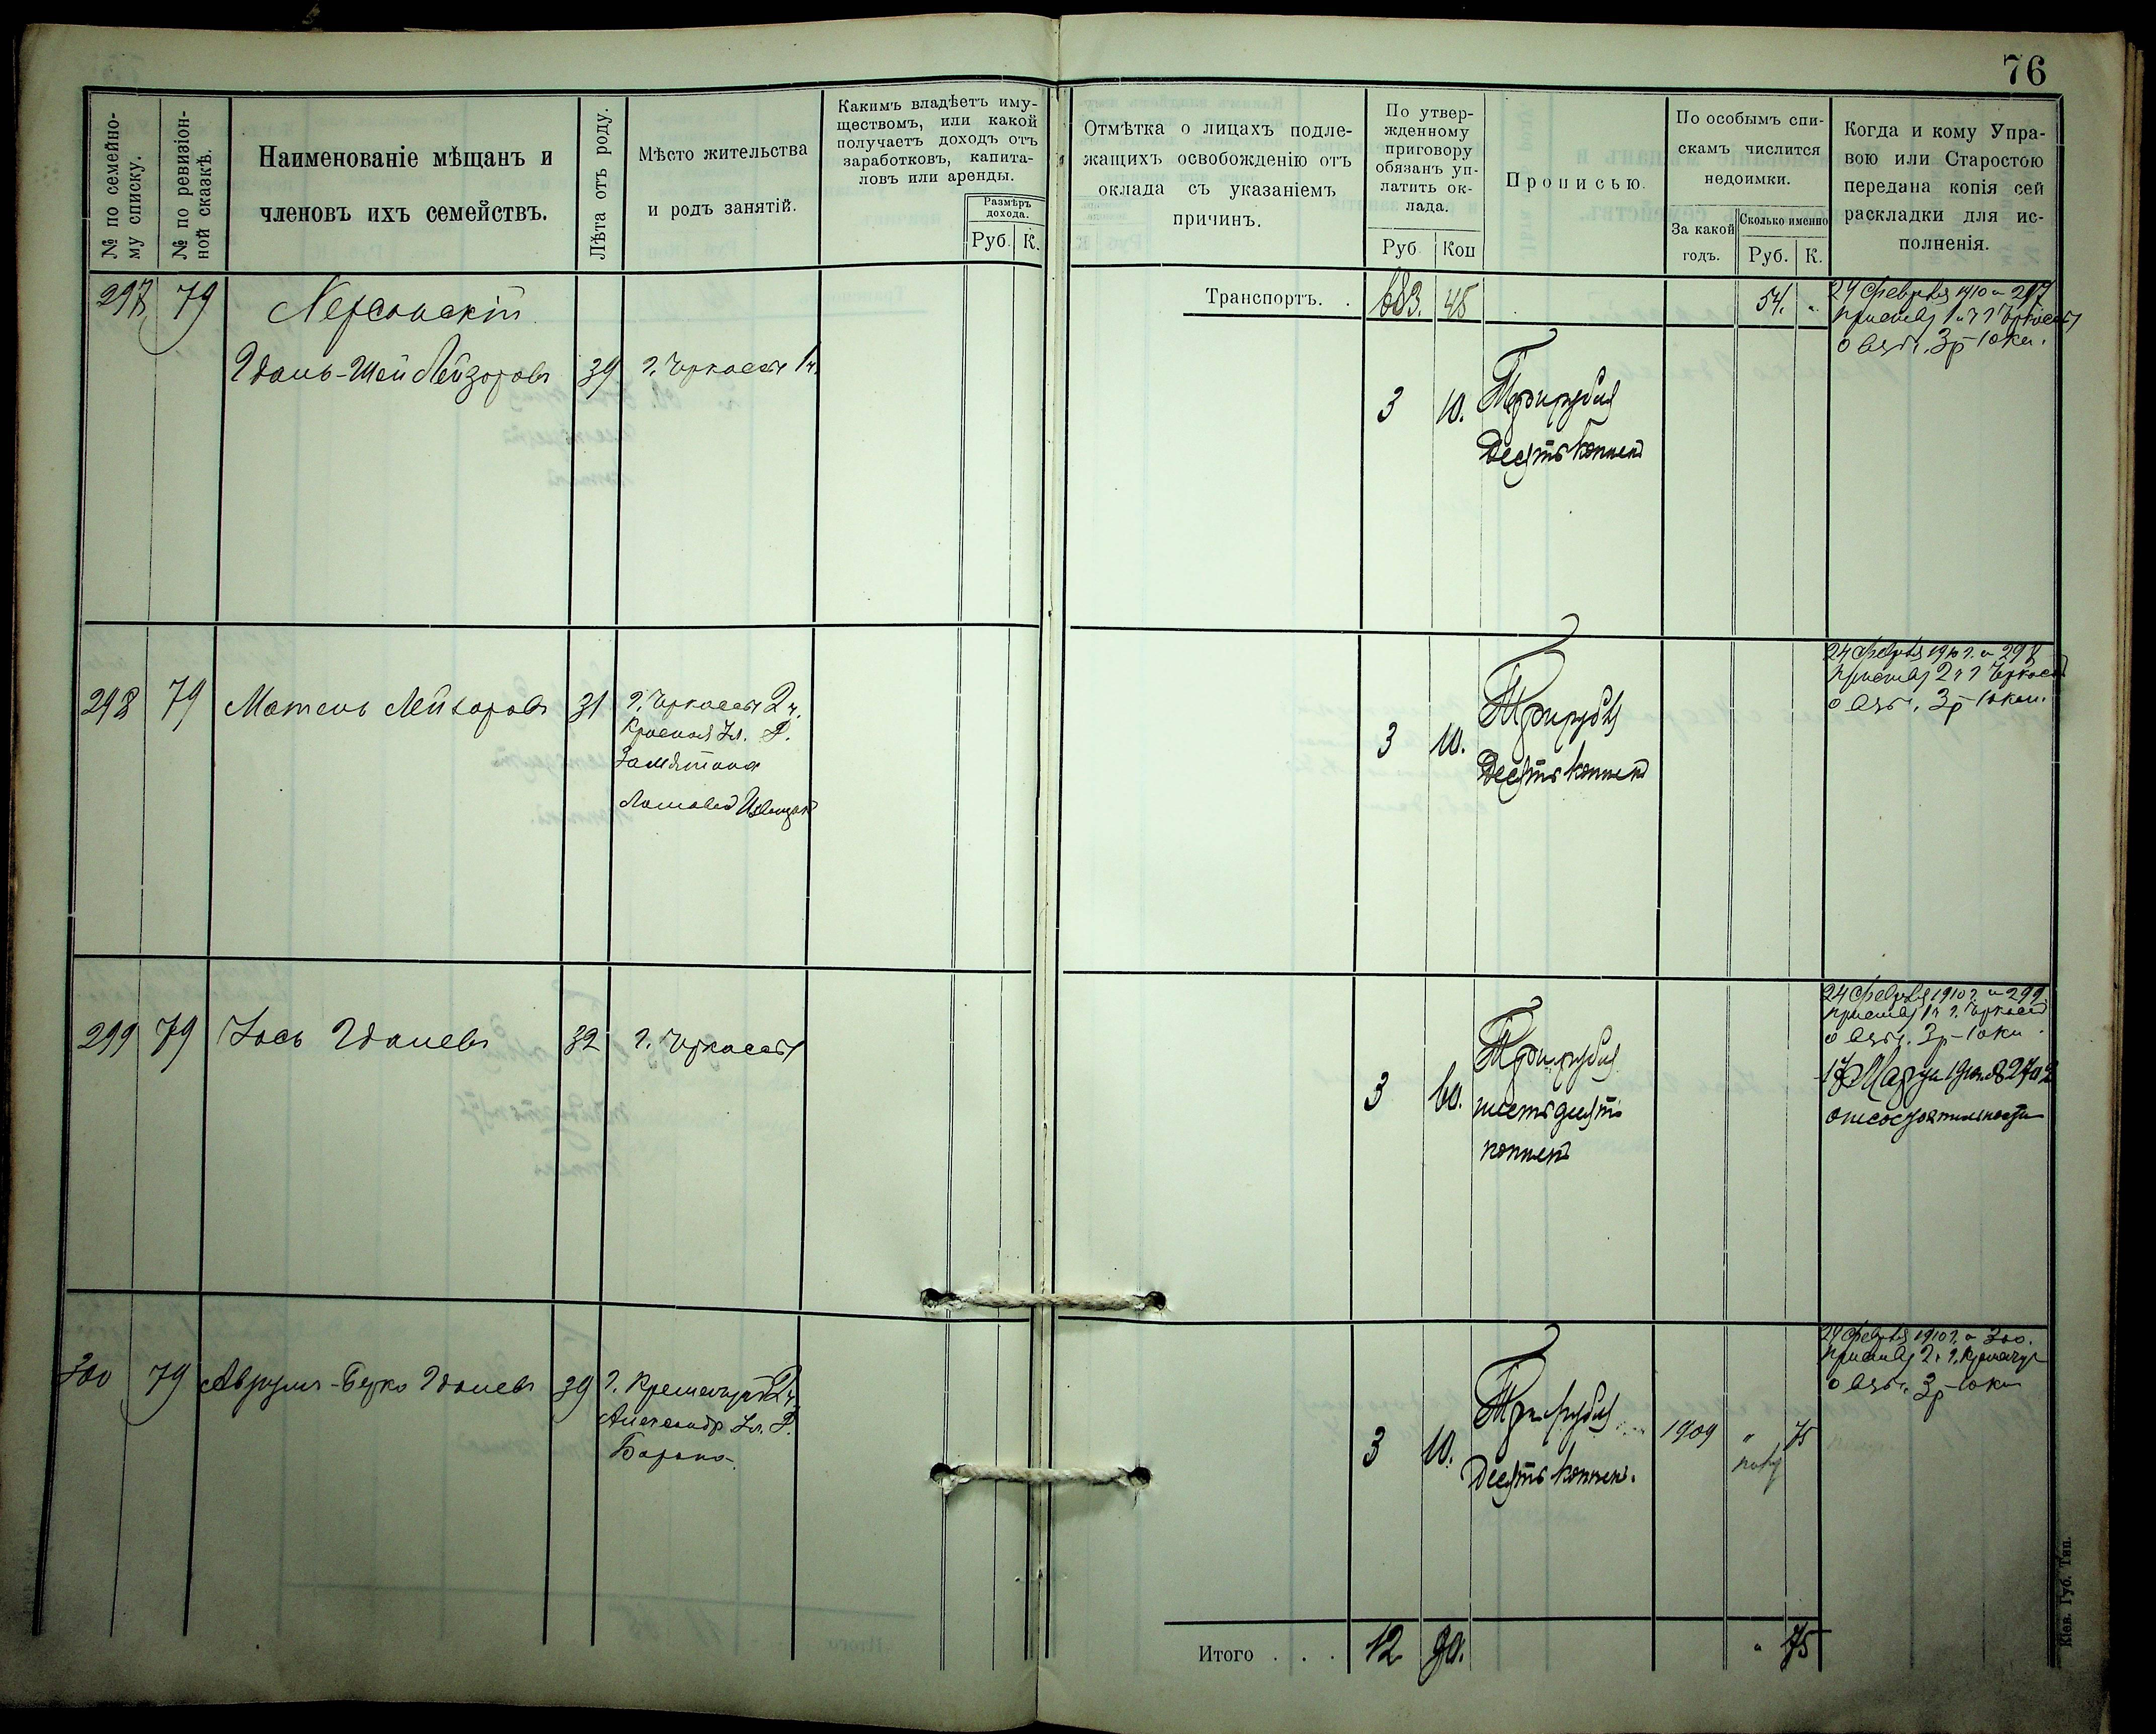 76
№ по семейно-
му списку.
№ по ревизіон-
ной сказкѣ.
Наименованіе мѣщанъ и
членовъ ихъ семействъ.
Лѣта отъ роду.
Мѣсто жительства
и родъ занятій.
Какимъ владѣетъ иму-
ществомъ, или какой
получаетъ доходъ отъ
заработковъ, капита-
ловъ или аренды.
Размѣръ
дохода.
Руб. К.
Отмѣтка о лицахъ подле-
жащихъ освобожденію отъ
оклада съ указаніемъ
причинъ.
По утвер-
жденному
приговору
обязанъ уп-
латить ок-
лада.
Руб. Коп
Прописью.
По особымъ спи-
скамъ числится
недоимки.
За какой
годъ.
Сколько именно
Руб. К.
Когда и кому Упра-
вою или Старостою
передана копія сей
раскладки для ис-
полненія.
Транспортъ. . 683. 45 54. "
297 79 Херсонскій
Гдань-Шеи Лейзоровъ 39 г. Черкассы 1ч.
3 10. Три рубля
Десять копѣекъ
24 Февраля 1910 № 297
Приставу 1 ч г Черкассы
о взыс. 3р-10коп.
298 79 Матень Лейзоровъ 31 г. Черкассы 2ч.
Красная Ул. Д.
Замятина
Ломовой Извощикъ
3 10. Три рубля
Десять копѣекъ
24 Февраля 1910 г. № 298
Приставу 2 ч г Черкассы
о взыс. 3р-10коп.
299 79 Іось Гдалевъ 32 г. Черкассы
3 60. Три рубля
шестьдесятъ
копѣекъ
24 Февраля 1910 г. № 299
Приставу 1ч г. Черкассы
о взыс. 3р-10коп.
17 Марта
о несостоятельности
300 79 Аврумъ-Берко Гдалевъ 39 г. Кременчугъ 2ч.
Александр. Ул. Д.
3 10. Три рубля
Десять копѣек.
1909 " 75
24 Февраля 1910 г. № 300.
Приставу 2 ч г. Кременчуг
о взыс. 3р-10коп
Итого . . . 12 90. " 75
Кіев. Губ. Тип.